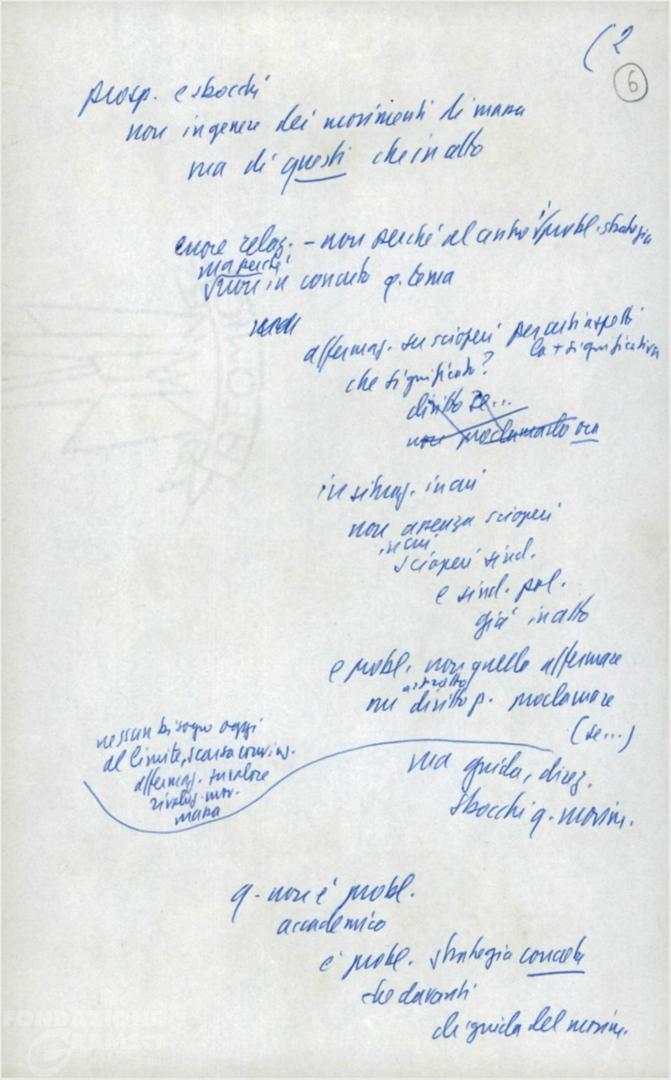 (2
6
prosp. e sbocchi
non in genere dei movimenti di massa
ma di questi che in atto
errore relaz. - non perché al centro probl. strategia
ma perché
fuori in concreto q. tema
affermaz. su scioperi per certi aspetti
la + significativa
che significato?
diritto se...
non proclamarlo ora
in situaz. in cui
non assenza scioperi
in cui
scioperi sind.
e sind. pol.
già in atto
e probl. non quello affermare
astratto
un diritto p. proclamare
(se...)
nessun bisogno oggi
al limite, scarsa convinz.
affermaz. su valore
rivoluz. mov.
massa
ma guida, direz.
sbocchi q. movim.
q. non è probl.
accademico
è probl. strategia concreta
che davanti
di guida del movim.
FONDAZIONE
GRAMSCI